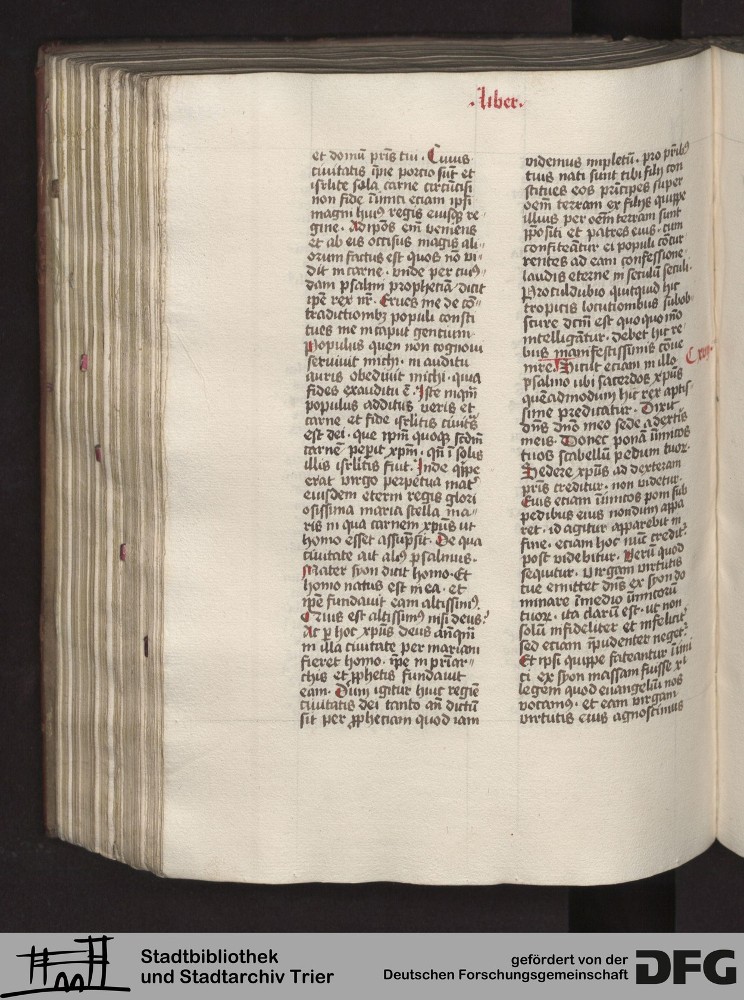 .Liber.
et domū pr̄is tui. Cuius
ciuitatis q̄pe portio sūt et
isrlite sola carne circūcisi
non fide inimici eciam ipsi
magni huiꝰ regis eiusqꝫ re-
gine. Adip̄os em̄ veniens
et ab eis occisus magis ali-
orum factus est quos nō vi-
dit in carne. vnde per cuiꝰ-
dam psalmi prophetiā dicit
ip̄e rex nr̄. Erues me de cō-
tradictionibꝫ populi consti
tues me in caput gentium
Populus quen non cognoui
seruiuit michi. in auditu
auris obediuit michi. quia
fides ex auditu ē. Iste
populus additus veris et
carne et fide isrlitis ciuitas
est dei. que ip̄m quoqꝫ scdm̄
carnē peperit xp̄m. qn̄ ī solis
illis isrlitis fuit. Inde q̄ppe
erat virgo perpetua mat̄
eiusdem eterni regis glori
osissima maria stella ma-
ris in qua carnem xp̄us ut
homo esset assūpsit. De qua
ciuitate ait aliꝰ psalmus.
Mater syon dicit homo. Et
homo natus est in ea. et
ip̄e fundauit eam altissimꝰ.
Quis est altissimꝰ nisi deus?
Ac ꝑ hoc xp̄us deus anq̄m
in illa ciuitate per mariam
fieret homo. ip̄e in priar-
chis et ꝓphetis fundauit
eam. Dum igitur huic regine
ciuitatis dei tanto an̄ dictū
sit per ꝓphetiam quod iam
videmus impletū. pro pr̄ibꝰ
tuis nati sunt tibi filij con
stitues eos prīcipes super
oēm terram ex filijs quippe
illius per oēm terram sunt
p̄positi et patres eius. cum
confiteātur ei populi cōcur
rentes ad eam confessione
laudis eterne in seculū seculi.
Proculdubio quitquid hic
tropicis locutionibus subob-
scure dcm̄ est quoquo mō
intelligātur. debet hic re-
bus manifestissimis cōue
nire. Sicut eciam in illo C xvij.
psalmo ubi sacerdos xp̄us
quēadmodum hic rex aptis-
sime predicatur. Dixit
dn̄s dn̄o meo sede a dextis
meis. Donec ponā inimicos
tuos scabellū pedum tuoꝝ.
Sedere xp̄us ad dexteram
pr̄is creditur. non videtur.
Euis etiam inimicos poni sub
pedibus eius nondum appa
ret. id agitur apparebit in
fine. eciam hoc nūc creditr̄
post videbitur. Verū quod
sequitur. Virgam virtutis
tue emittet dn̄s ex syon do
minare ī medio inimicorū
tuoꝝ. ita clarū est. ut non
solū infideliter et infelicit̄
sed eciam īpudenter neget̄.
Et ipsi quippe fateantur inimi
ci ex syon massam fuisse xi
legem quod euangeliū nos
vocamꝰ. et eam virgam
virtutis eius agnoscimus
Stadtbibliothek
und Stadtarchiv Trier
gefördert von der
Deutschen Forschungsgemeinschaft
DFG